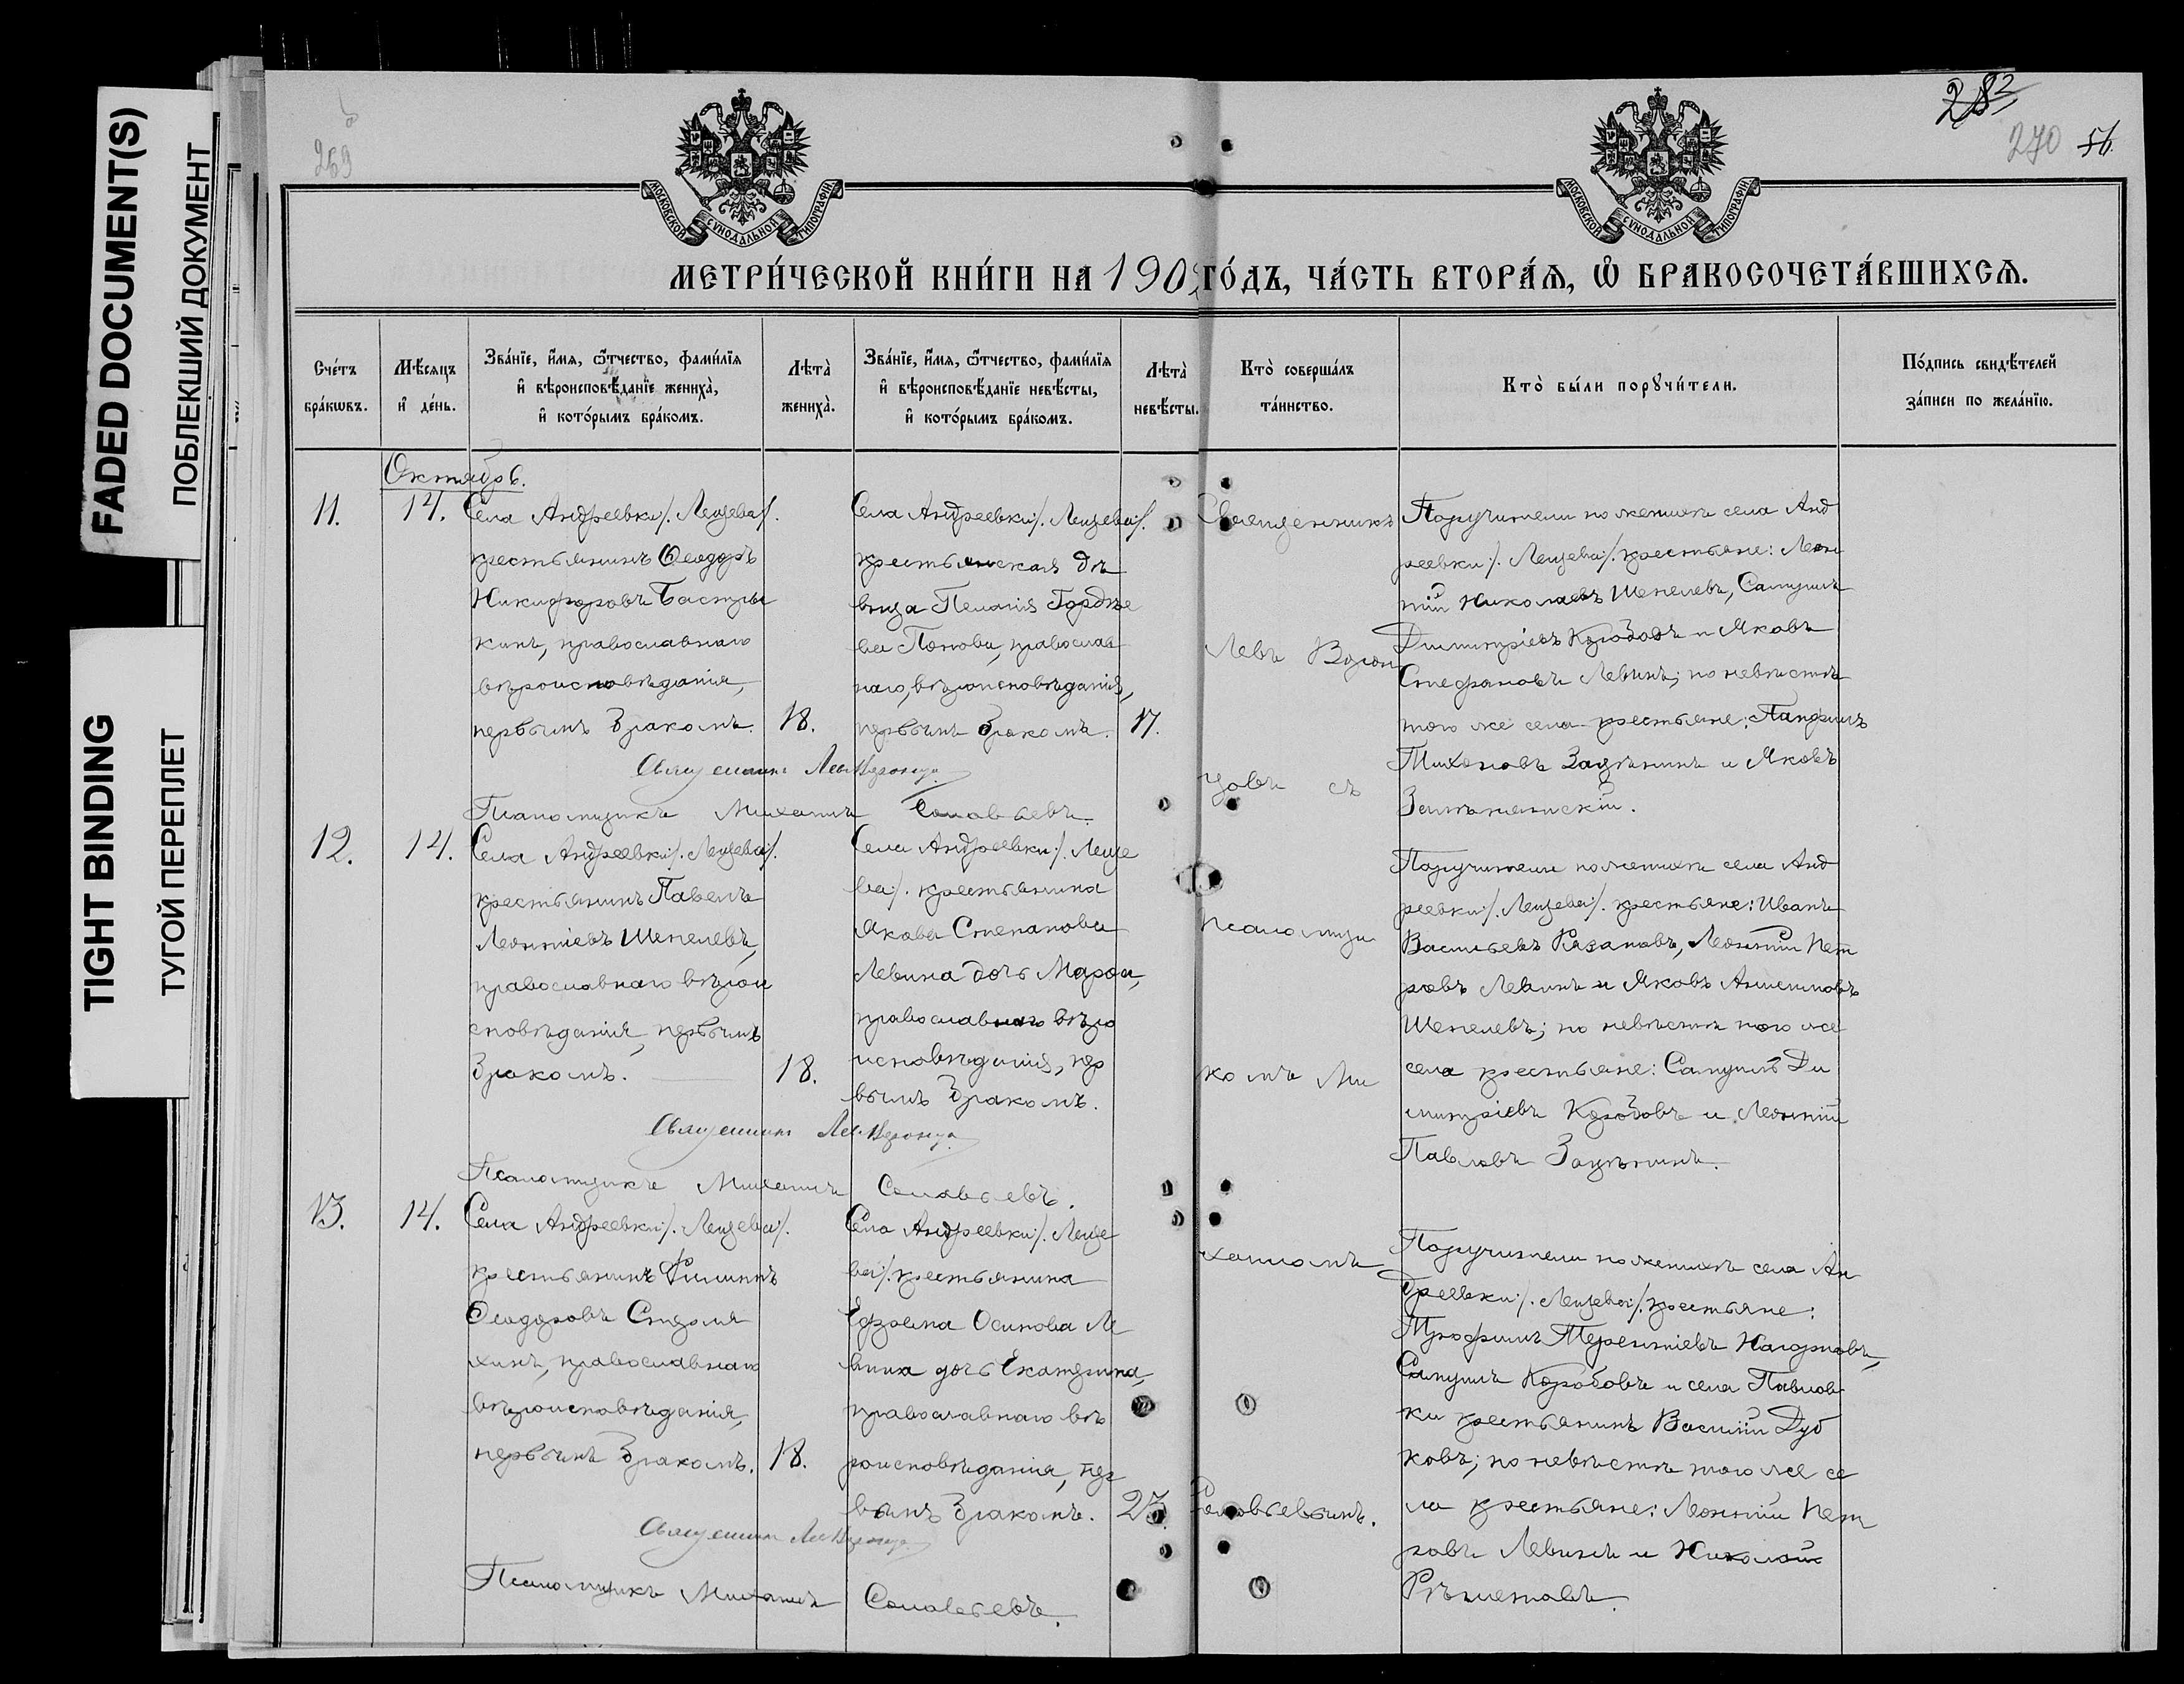 FADED DOCUMENT(S)
ПОБЛЕКШИЙ ДОКУМЕНТ
TIGHT BINDING
ТУГОЙ ПЕРЕПЛЕТ
269
282
270 56.
МОСКОВСКОЙ СУНОДАЛЬНОЙ ТИПОГРАФІИ
МОСКОВСКОЙ СУНОДАЛЬНОЙ ТИПОГРАФІИ
МЕТРИ́ЧЕСКОЙ КНИ́ГИ НА 190 ГО́ДЪ, ЧА́СТЬ ВТОРА́Ѧ, Ѿ БРАКОСОЧЕТА́ВШИХСѦ.
Сче́тъ
бра́кѡвъ.
Мѣ́сяцъ
и҆ де́нь.
Зва́нїе, и҆́мя, ѻ҆́тчество, фами́лїя
и҆ вѣроисповѣ́данїе жениха̀,
и҆ кото́рымъ бра́комъ.
Лѣта̀
жениха̀.
Зва́нїе, и҆́мя, ѻ҆́тчество, фами́лїя
и҆ вѣроисповѣ́данїе невѣ́сты,
и҆ кото́рымъ бра́комъ.
Лѣта̀
невѣ́сты.
Кто̀ соверша́лъ
та́инство.
Кто̀ бы́ли порꙋчи́тели.
По́дпись свидѣ́телей
за́писи по жела́нїю.
Октябрь.
11.
14.
Села Андреевки/. Лещева/.
крестьянинъ Ѳеодоръ
Никифоровъ Бастры
кинъ, православнаго
вѣроисповѣданія,
первымъ бракомъ.
18.
Села Андреевки/. Лещева/.
крестьянская дѣ
вица Пелагія Гордѣе
ва Попова, православ
наго, вѣроисповѣданія,
первымъ бракомъ.
17.
Священникъ
Левъ Ворон
цовъ съ
псаломщи
комъ Ми
хаиломъ
Соловьевымъ.
Поручители по женихѣ села Анд
реевки/. Лещева/. крестьяне: Леон
тій Николаевъ Шепелевъ, Самуилъ
Димитріевъ Коробовъ и Яковъ
Стефановъ Левинъ; по невѣстѣ
того же села крестьяне: Панфилъ
Тихоновъ Зацѣпинъ и Яковъ
Священникъ Левъ Воронцо
Псаломщикъ Михаилъ Соловьевъ.
12.
14.
Села Андреевки/. Лещева/.
крестьянинъ Павелъ
Леонтіевъ Шепелевъ,
православнаго вѣрои
сповѣданія, первымъ
бракомъ.
18.
Села Андреевки/. Леще
ва/. крестьянина
Якова Степанова
Левина дочь Марѳа,
православнаго вѣро
исповѣданія, пер
вымъ бракомъ.
Поручители по женихѣ села Анд
реевки/. Лещева/. крестьяне: Иванъ
Васильевъ Рязановъ, Леонтій Пет
ровъ Левинъ и Яковъ
Шепелевъ; по невѣстѣ того же
села крестьяне: Самуилъ Ди
митріевъ Коробовъ и Леонтій
Павловъ Зацѣпинъ.
Священникъ Левъ Воронцо
Псаломщикъ Михаилъ Соловьевъ.
13.
14.
Села Андреевки/. Лещева/.
крестьянинъ Филиппъ
Ѳеодоровъ Стероля
хинъ, православнаго
вѣроисповѣданія,
первымъ бракомъ.
18.
Села Андреевки/. Леще
ва/. крестьянина
Ефрема Осипова Ле
вина дочь Екатерина,
православнаго вѣ
роисповѣданія, пер
вымъ бракомъ.
23
Поручители по женихѣ села Ан
дреевки/. Лещева/. крестьяне:
Трофимъ Терентіевъ
Самуилъ Коробовъ и села Павлов
ки крестьянинъ Василій Дуб
ковъ; по невѣстѣ того же се
ла крестьяне: Леонтій Пет
ровъ Левинъ и Николай
Рѣшетовъ.
Священникъ Левъ Воронцо
Псаломщикъ Михаилъ Соловьевъ.